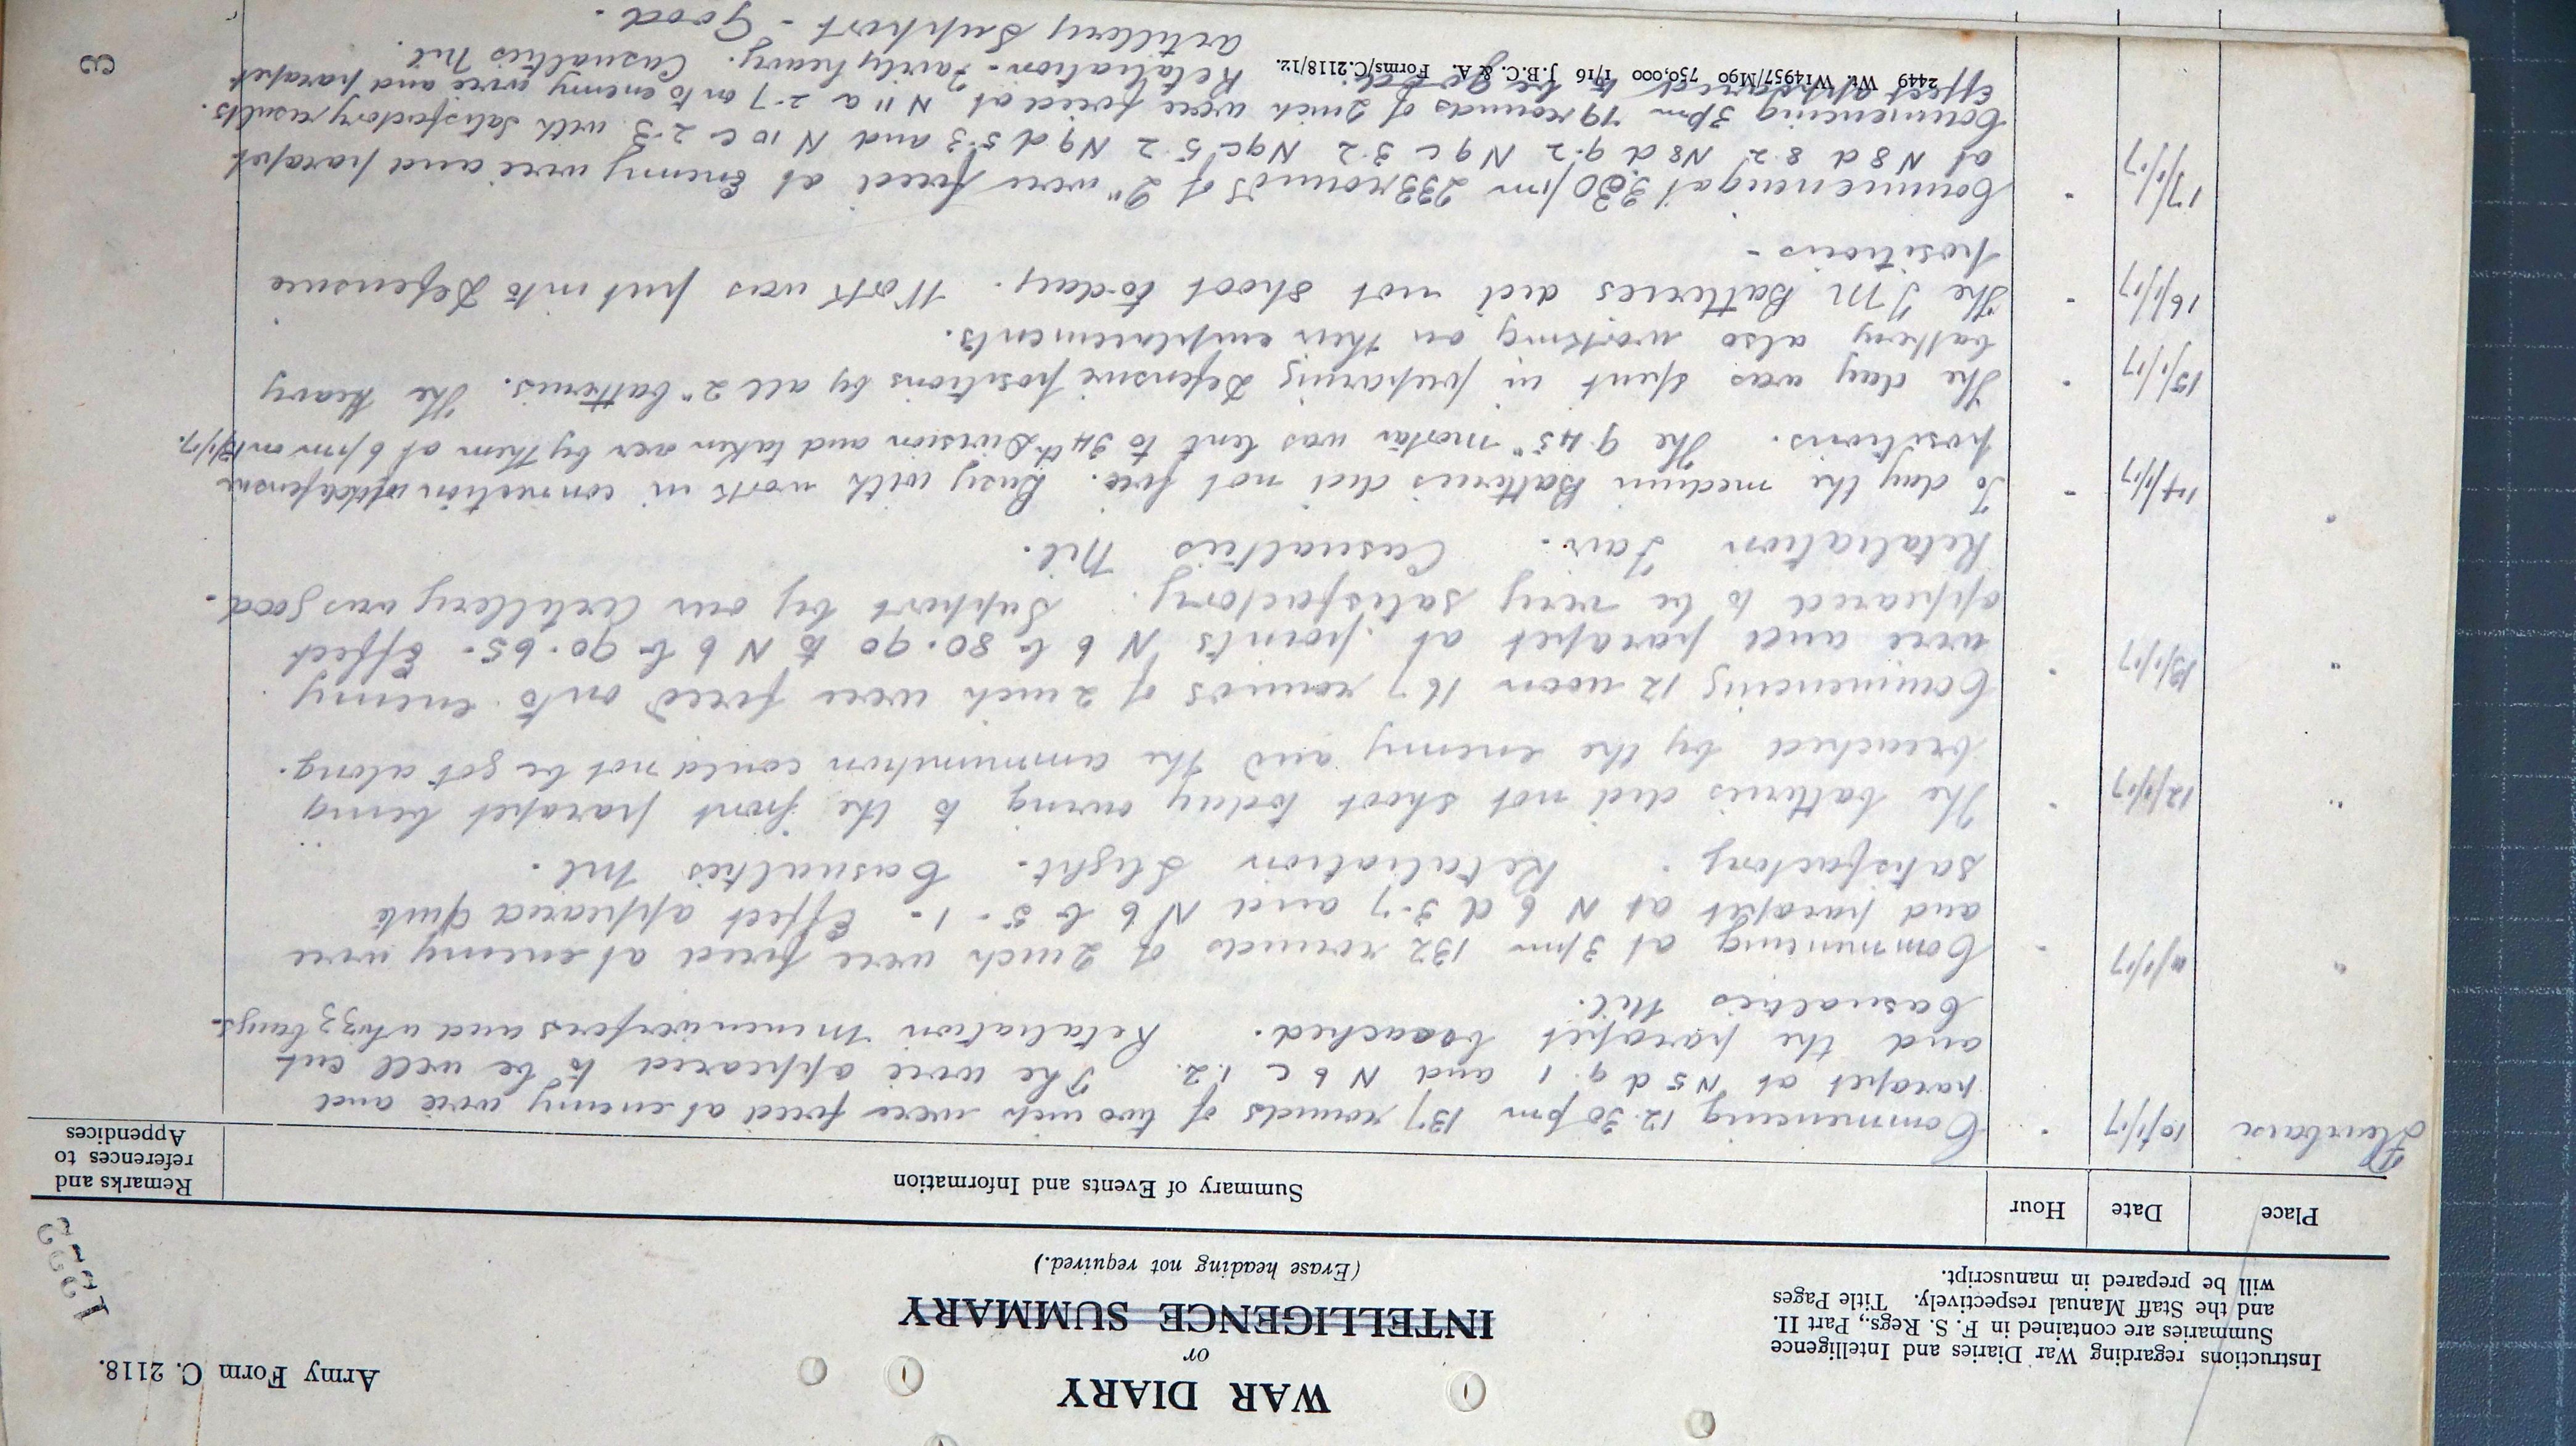 Army Form C. 2118.
WAR DIARY
or
INTELLIGENCE SUMMARY
(Erase heading not required.)
Instructions regarding War Diaries and Intelligence
Summaries are contained in F. S. Regs., Part II.
and the Staff Manual respectively. Title Pages
will be prepared in manuscript.
1553
Place Date Hour Summary of Events and Information Remarks and
references to
Appendices
Fleurbaix 10/1/17 Commencing 12.30 pm 137 rounds of two inch were fired at enemy wire and
parapet at N 5 d 9.1 and N 6 c 1.2. The wire appeared to be well cut
and the parapet breached. Retaliation Minenwerfers and whizzbangs.
Casualties Nil.
" 11/1/17 Commencing at 3 pm 132 rounds of 2 inch were fired at enemy wire
and parapet at N 6 d 3.7 and N 6 b 5.1 - Effect appeared quite
satisfactory. Retaliation Slight. Casualties Nil.
" 12/1/17 The batteries did not shoot today owing to the front parapet being
breached by the enemy and the ammunition could not be got along.
" 13/1/17 Commencing 12 noon 167 rounds of 2 inch were fired onto enemy
wire and parapet at points N 6 b 80.90 to N 6 b 90.65. Effect
appeared to be very satisfactory. Support by our Artillery was good.
Retaliation Fair. Casualties Nil.
" 14/1/17 To day the medium Batteries did not fire. Busy with work in connection with defensive
positions. The 9.45" mortar was lent to 34th Division and taken over by them at 6 pm on 13/1/17.
15/1/17 The day was spent in preparing Defensive positions by all 2" batteries. The Heavy
battery also working on their emplacements.
16/1/17 The T M Batteries did not shoot today. Work was put into Defensive
positions -
17/1/17 Commencing at 3.30 pm 233 rounds of 2" were fired at Enemy wire and parapet
at N 8 d 8.2 N 8 d 9.2 N 9 c 3.2 N 9 c 5.2 N 9 d 5.3 and N 10 c 2.3 with satisfactory results.
Commencing 3 pm 79 rounds of 2 inch were fired at N 11 a 2.7 onto enemy wire and parapet
Effect appeared to be good. Retaliation - Fairly heavy. Casualties Nil.
Artillery Support - Good.
2449 Wt. W14957/M90 750,000 1/16 J.B.C. & A. Forms/C.2118/12.
3